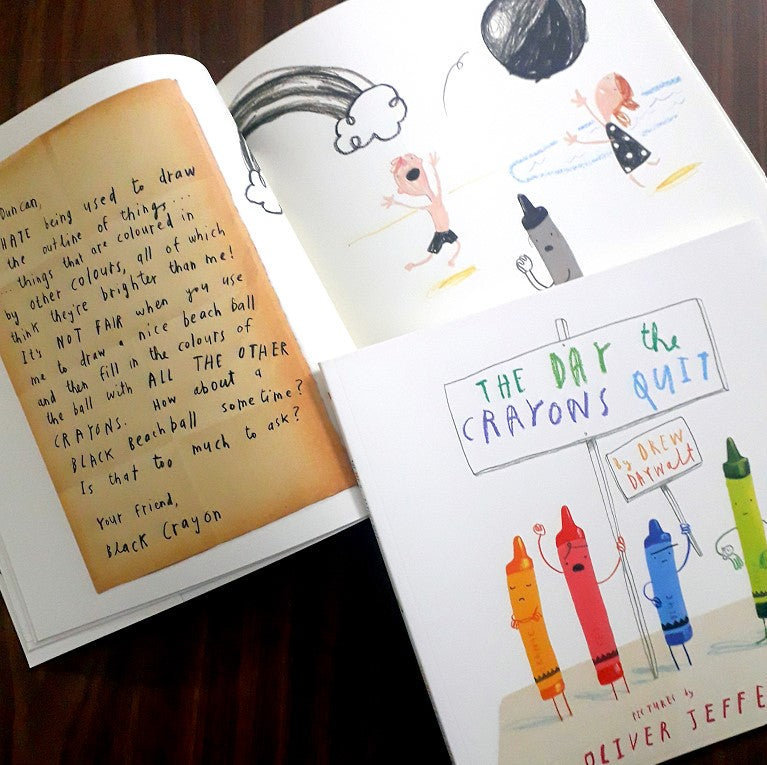 Duncan,
HATE being used to draw
the outline of things...
... things that are coloured in
by other colours, all of which
think they're brighter than me!
It's NOT FAIR when you use
me to draw a nice beach ball
and then fill in the colours of
the ball with ALL THE OTHER
CRAYONS. How about a
BLACK beach ball sometime?
Is that too much to ask?
Your friend,
Black Crayon
THE DAY the
CRAYONS QUIT
By DREW
DAYWALT
PICTURES by
OLIVER JEFFE